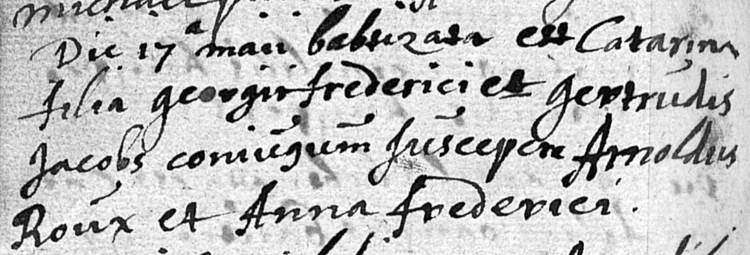 Die 17a maii babtizata est Catarina
filia georgii frederici et gertrudis
Jacobs coniugum susceperę Arnoldus
Roux et Anna frederici.